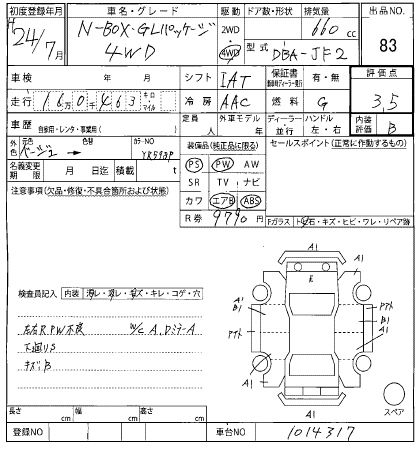 初度登録年月 車名・グレード 駆動 ドア数・形状 排気量 出品NO.
H24年/7月 N-BOX・G・Lパッケージ 4WD 2WD 4WD 660cc 83
型式 DBA-JF2
車検 年 月 シフト IAT 保証書 有・無 評価点
走行 16万0千463 キロ・マイル 冷房 AAC 燃料 G 3,5
車歴 自家用・レンタ・事業用( ) 定員 人 外車モデル 年 ディーラー・並行 ハンドル 左・右 内装評価 B
外色 元色 ベージュ → 色替 カラーNO YR593P
装備品(純正品に限る) セールスポイント(正常に作動するもの)
名義変更期限 月 日迄 積載 t
PS PW AW
SR TV ナビ
カワ エアB ABS
R券 9790円
注意事項(欠品・修復・不具合箇所および状態)
Fガラス トビ石・キズ・ヒビ・ワレ・リペア跡
検査員記入 内装 汚レ・スレ・キズ・キレ・コゲ・穴
左右RPW不良 W/C A,DミラーA
下廻りS
キズB
A1
A1
E
A1
B1
アナイト
アナイト
B1
A1
A1
A1
スペア
長さ cm 幅 cm 高さ cm
登録NO 車台NO 1014317